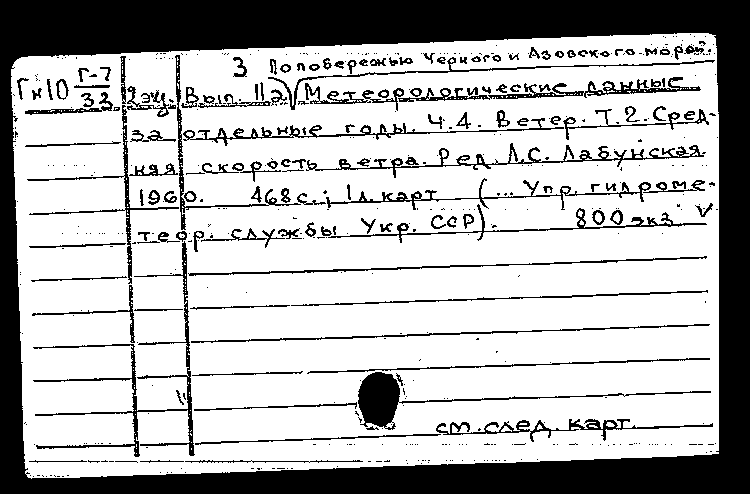 3 По побережью Черного и Азовского морей.
Гн10 Г-7/33 2 экз. Вып. 11а) Метеорологические данные
за отдельные годы. Ч.4. Ветер. Т.2. Сред-
няя скорость ветра. Ред. Л.С. Лабунская
1960. 468 с.; 1 л. карт (... Упр. гидроме-
теор. службы Укр. ССР). 800 экз. V
см. след. карт.